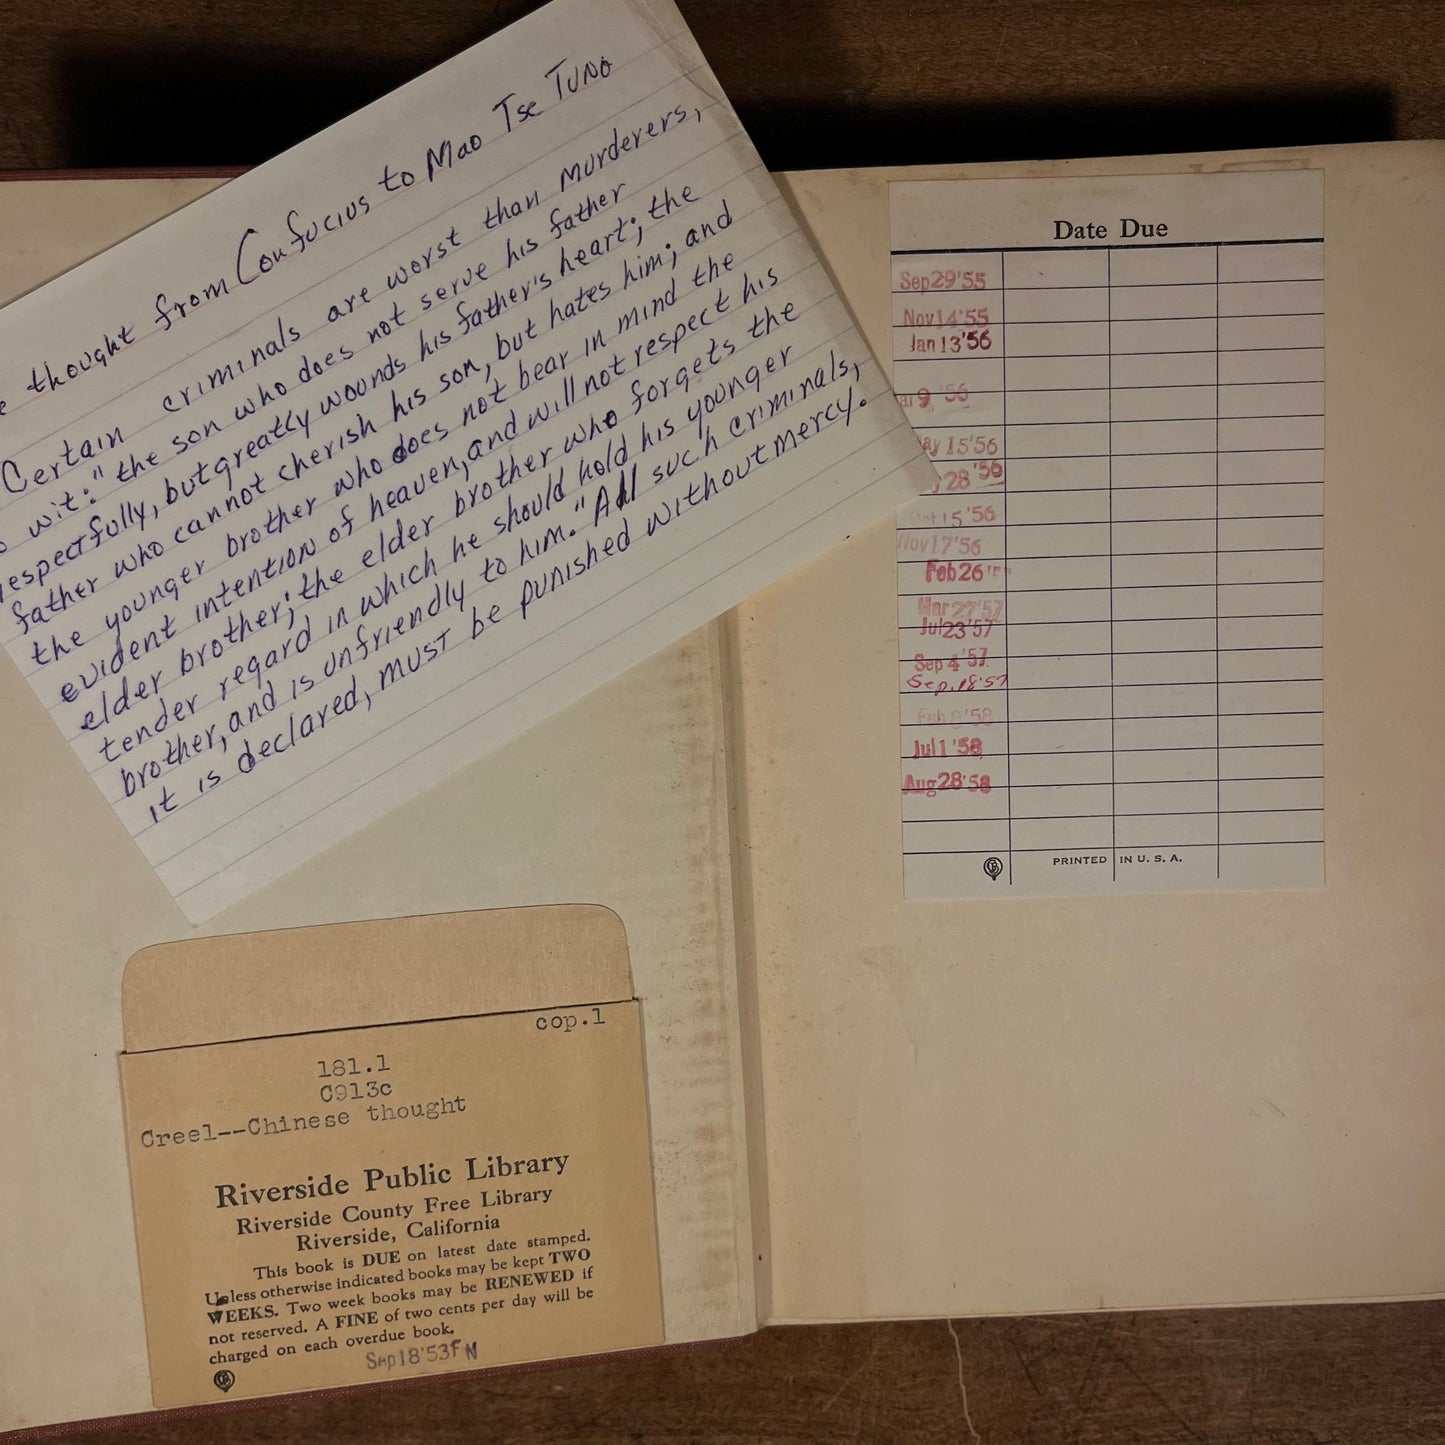 thought from Confucius to Mao Tse Tung
Certain criminals are worst than murderers,
wit: "the son who does not serve his father
respectfully, but greatly wounds his father's heart; the
father who cannot cherish his son, but hates him; and
the younger brother who does not bear in mind the
evident intention of heaven, and will not respect his
elder brother; the elder brother who forgets the
tender regard in which he should hold his younger
brother, and is unfriendly to him." All such criminals,
it is declared, must be punished without mercy.
Date Due
Sep29'55
Nov14'55
Jan13'56
9,'56
15'56
28'56
15'56
Nov17'56
Feb26'
Mar27'57
Jul23'57
Sep4'57
Sep.18'57
Feb '58
Jul1'58
Aug28'58
PRINTED IN U. S. A.
cop.1
181.1
C913c
Creel--Chinese thought
Riverside Public Library
Riverside County Free Library
Riverside, California
This book is DUE on latest date stamped.
Unless otherwise indicated books may be kept TWO
WEEKS. Two week books may be RENEWED if
not reserved. A FINE of two cents per day will be
charged on each overdue book.
Sep18'53FN